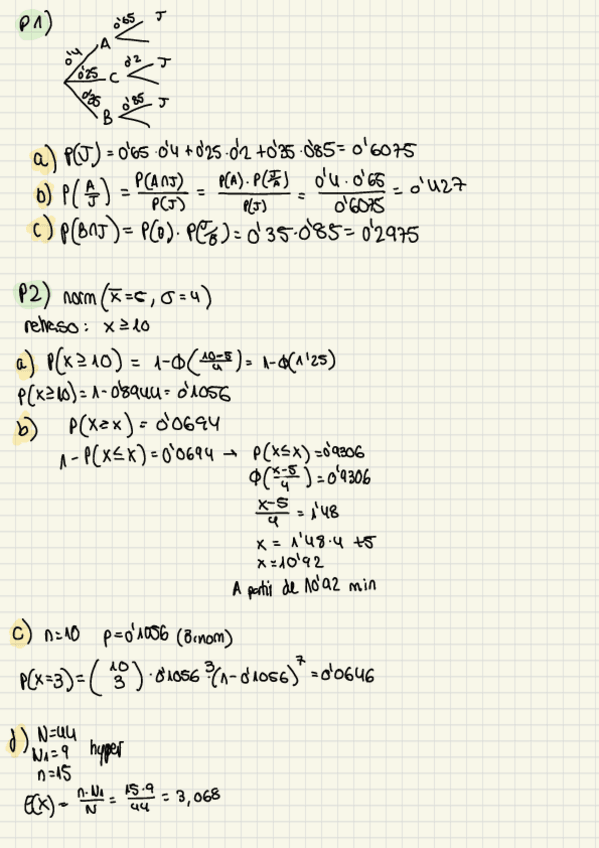 P1)
0'4 A 0'65 J
0'25 C 0'2 J
0'35 B 0'85 J
a) P(J) = 0'65 · 0'4 + 0'25 · 0'2 + 0'35 · 0'85 = 0'6075
b) P(A/J) = P(A∩J)/P(J) = P(A) · P(J/A)/P(J) = 0'4 · 0'65/0'6075 = 0'427
c) P(B∩J) = P(B) · P(J/B) = 0'35 · 0'85 = 0'2975
P2) norm (x̄=5, σ=4)
retraso: x ≥ 10
a) P(x ≥ 10) = 1-Φ(10-5/4) = 1-Φ(1'25)
P(x≥10) = 1-0'8944 = 0'1056
b) P(x≥x) = 0'0694
1-P(x≤x) = 0'0694 → P(x≤x) = 0'9306
Φ(x-5/4) = 0'9306
x-5/4 = 1'48
x = 1'48·4 +5
x = 10'92
A partir de 10'92 min
c) n=10 p=0'1056 (Binom)
P(x=3) = (10 3) · 0'1056³ · (1-0'1056)⁷ = 0'0646
d) N=44
N1=9 hyper
n=15
E(X) = n·N1/N = 15·9/44 = 3,068